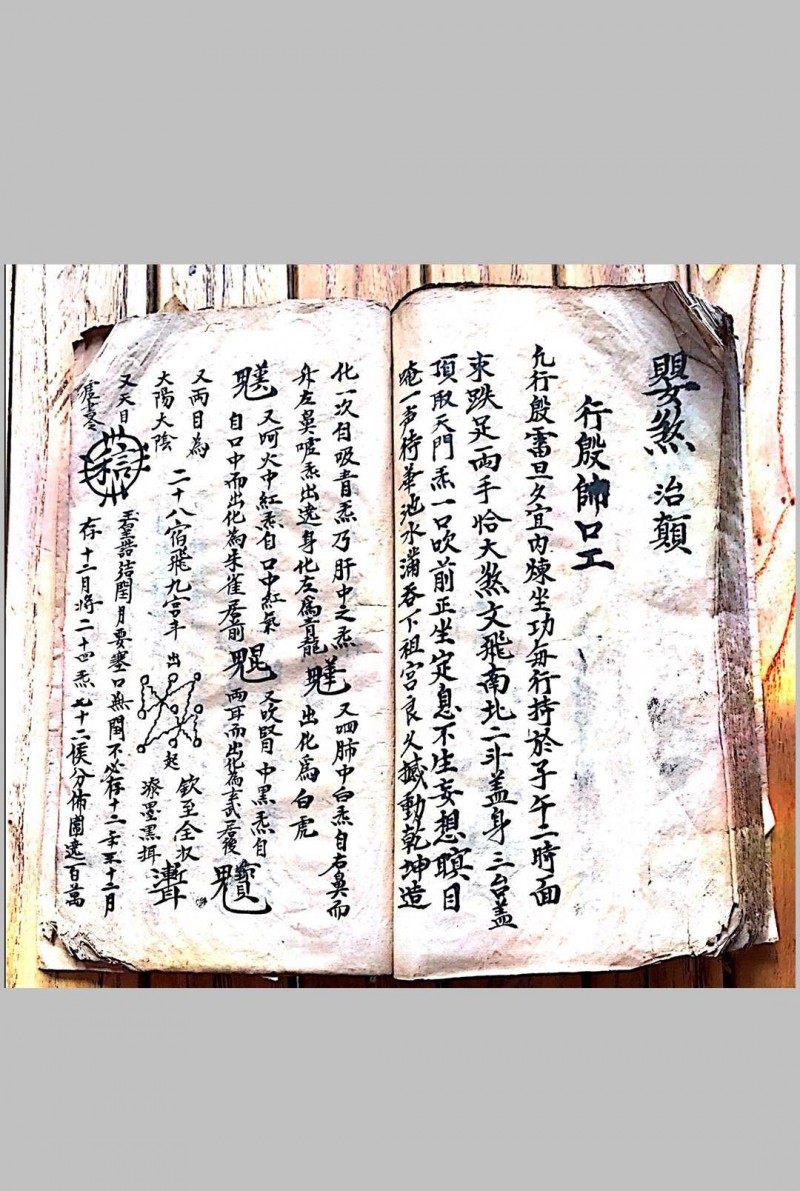 煞 治顛
行殷帥口工
凢行殷雷旦夕宜内煉坐功每行持於子午二時面
東趺足兩手恰大煞文飛南北二斗盖身三台盖
頂取天門炁一口吹前正坐定息不生妄想瞑目
唵一声待華池水滿吞下祖宮良久撼動乾坤造
化一次自吸青炁乃肝中之炁 又四肺中白炁自右鼻而
升左鼻噓炁出遶身化左爲青龍 出化爲白虎
又呵火中紅炁自口中紅氣 又吹腎中黑炁自
自口中而出化為朱雀居前 兩耳而出化為玄武居後
又兩目為
大陽大陰
二十八宿飛九宮斗 出 起
欽至全収
潻墨黑
又天目
玉皇誥 閏月要塞口無閏不必存十二 十二月
存十二月將二十四炁七十二侯分佈圍遶百萬